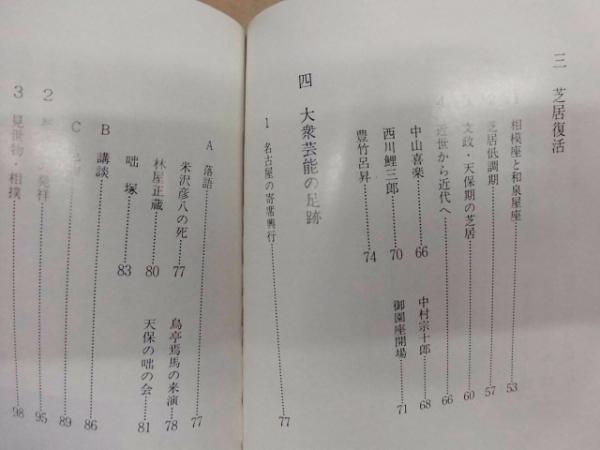 三 芝居復活
1 相模座と和泉屋座 53
2 芝居低調期 57
3 文政・天保期の芝居 60
4 近世から近代へ 66
中山喜楽 66
中村宗十郎 68
西川鯉三郎 70
御園座開場 71
豊竹呂昇 74
四 大衆芸能の足跡
1 名古屋の寄席興行 77
A 落語 77
米沢彦八の死 77
烏亭焉馬の来演 78
林屋正蔵 80
天保の咄の会 81
咄塚 83
B 講談 86
C 89
2 発祥 95
3 見世物・相撲 98